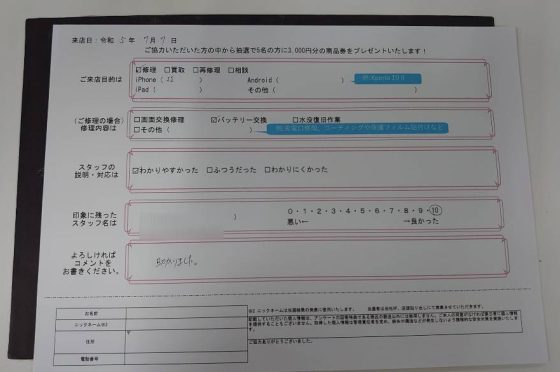 来店日：令和 5 年 7月 7 日
ご協力いただいた方の中から抽選で5名の方に3,000円分の商品券をプレゼントいたします！
ご来店目的は
☑修理 □買取 □再修理 □相談
iPhone ( 12 ) Android ( ) 例:Xperia 10 II
iPad ( ) その他 ( )
(ご修理の場合)
修理内容は
□画面交換修理 ☑バッテリー交換 □水没復旧作業
□その他 ( )
スタッフの
説明・対応は
☑わかりやすかった □ふつうだった □わかりにくかった
印象に残った
スタッフ名は
)
0・1・2・3・4・5・6・7・8・9・⑩
悪い← →良かった
よろしければ
コメントを
お書きください。
助かりました。
お名前
ニックネーム※2
住所
〒
電話番号
ご協力ありがとうございました。